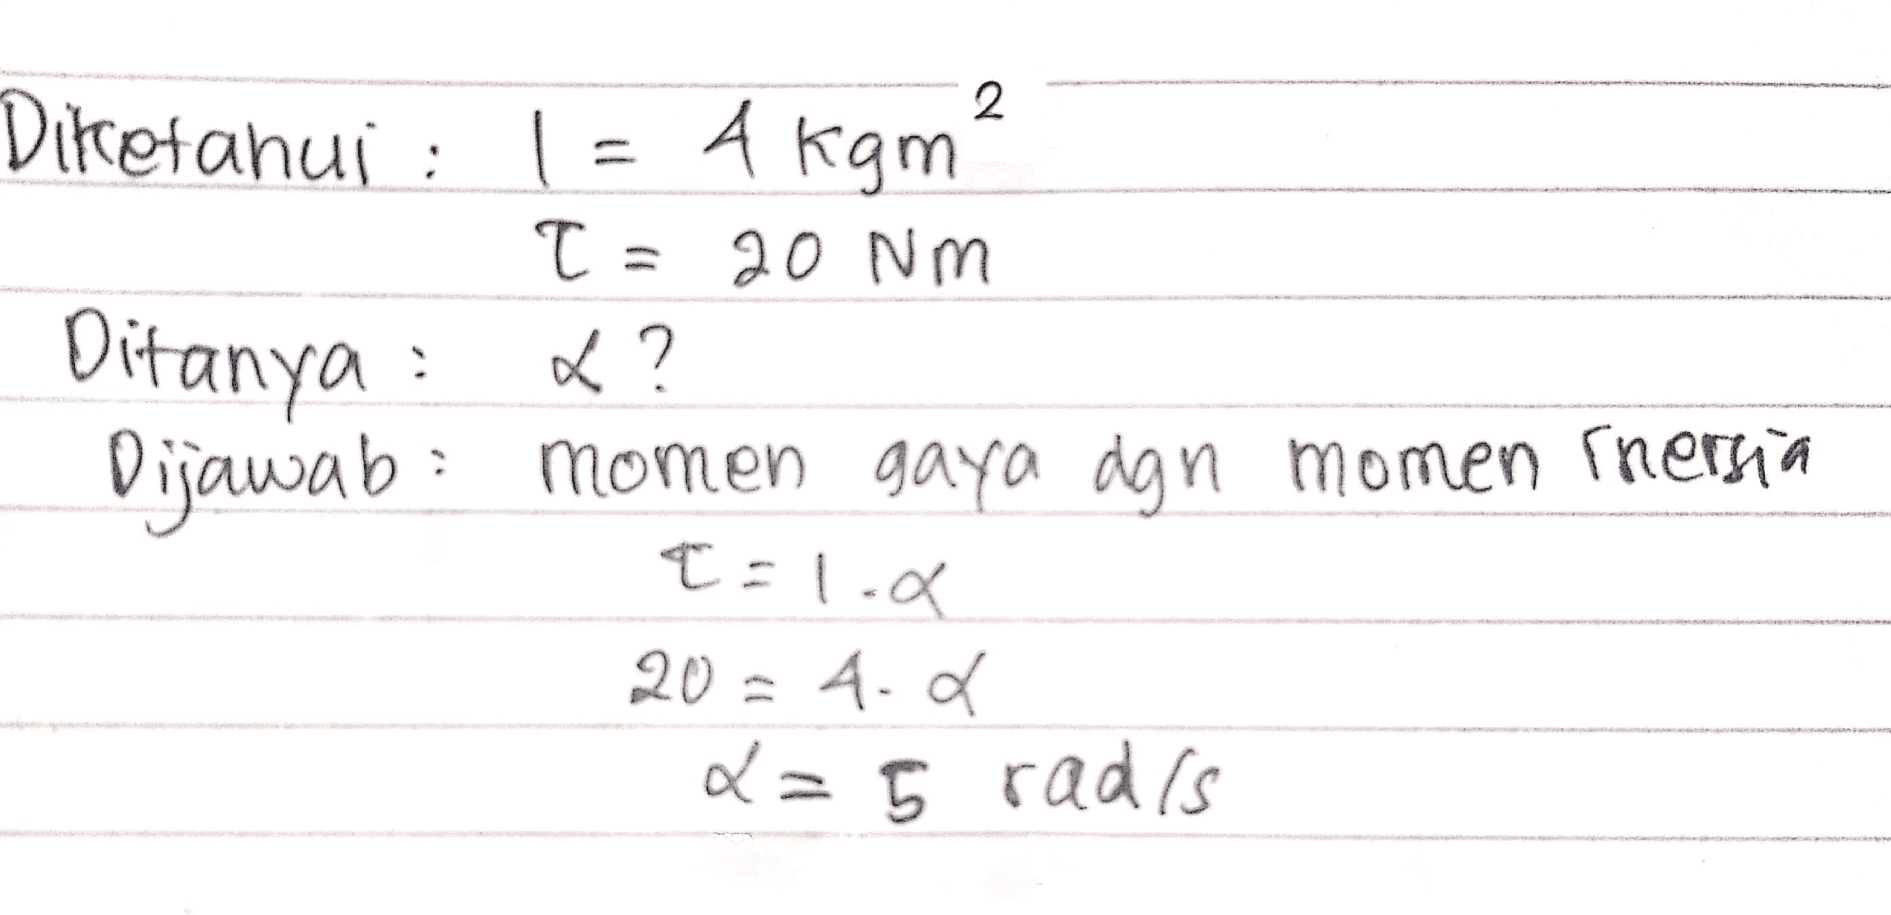 Diketahui : I = 4 kgm²
τ = 20 Nm
Ditanya : α ?
Dijawab : momen gaya dgn momen inersia
τ = I . α
20 = 4 . α
α = 5 rad/s